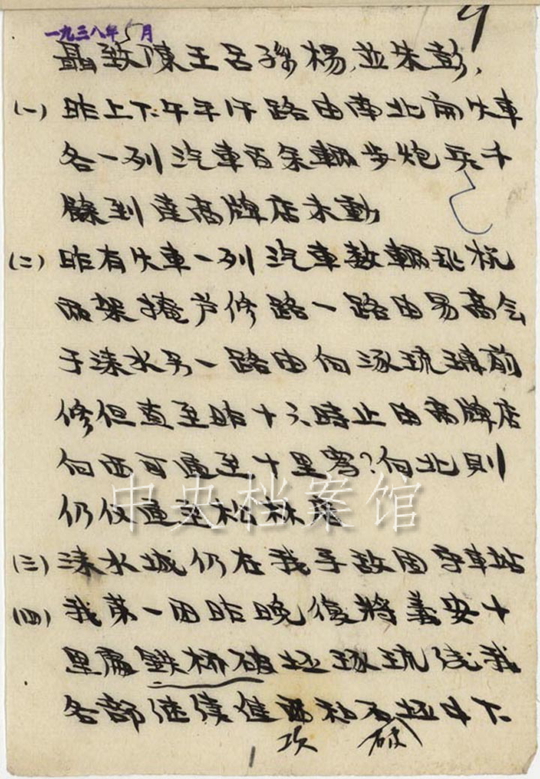 一九三八年5月
聶致陳王呂孫楊,並朱彭,
(一)昨上下午平汗路由南北開火車
各一列汽車百余輛步炮兵千
餘到達高牌店未動
(二)昨有火車一列汽車數輛飛机
兩架掩护修路一路由易高会
于涞水另一路由向涿琉璃前
修但直至昨十六時止由高牌店
向西可通至十里舖?向北則
仍仅通至松林店
(三)涞水城仍在我手敌固守車站
(四)我第一团昨晚復將義安十
里處鉄桥破坏琢琉线我
各部继續進攻和破坏中下
中央档案馆
1